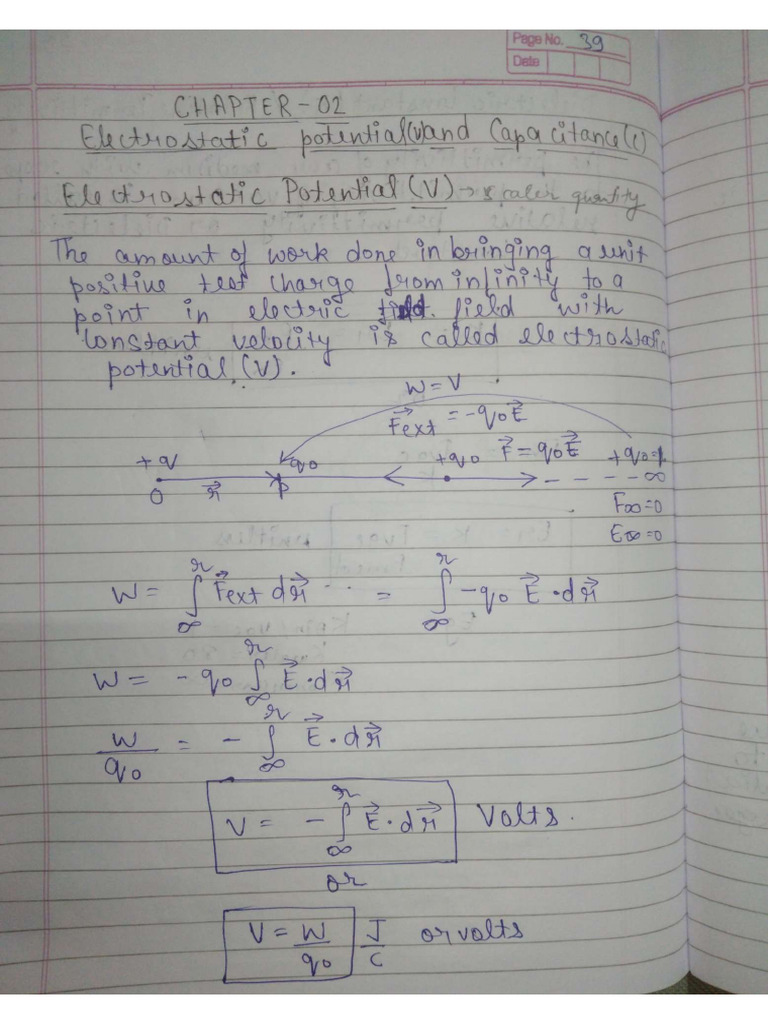 Page No. 39
Date
CHAPTER-02
Electrostatic potential(v)and Capacitance(c)
Electrostatic Potential (V) → scaler quantity
The amount of work done in bringing a unit
positive test charge from infinity to a
point in electric field with
constant velocity is called electrostatic
potential (V).
W = V
F⃗ext = -q₀E⃗
+q q₀ +q₀ F⃗ = q₀E⃗ +q₀
O r⃗ P - - - - ∞
F∞=0
E∞=0
W = ∫∞^r F⃗ext dr⃗ = ∫∞^r -q₀ E⃗ · dr⃗
W = - q₀ ∫∞^r E⃗ · dr⃗
W/q₀ = - ∫∞^r E⃗ · dr⃗
V = - ∫∞^r E⃗ · dr⃗ Volts.
or
V = W/q₀ J/C or volts